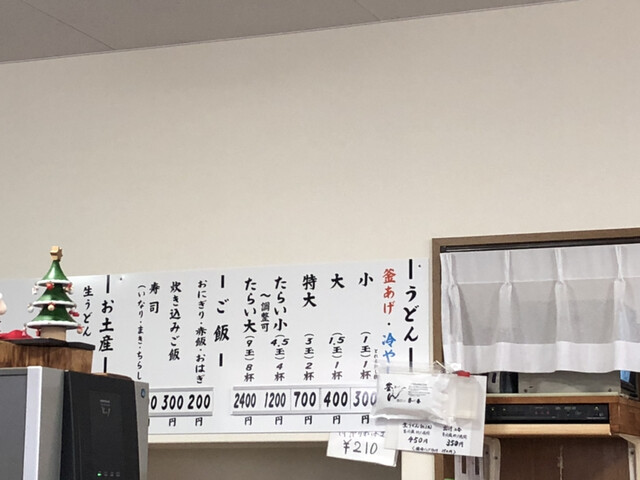 うどん
釜あげ・冷や
小 (1玉)1杯 300円
大 (1.5玉)1杯 400円
特大 (3玉)2杯 700円
たらい小 (4.5玉)4杯 1200円
〜調整可
たらい大 (9玉)8杯 2400円
ご飯
おにぎり・赤飯・おはぎ 200円
炊き込みご飯 300円
寿司
(いなり・まき・ちらし 0円
お土産
生うどん
450円
350円
¥210